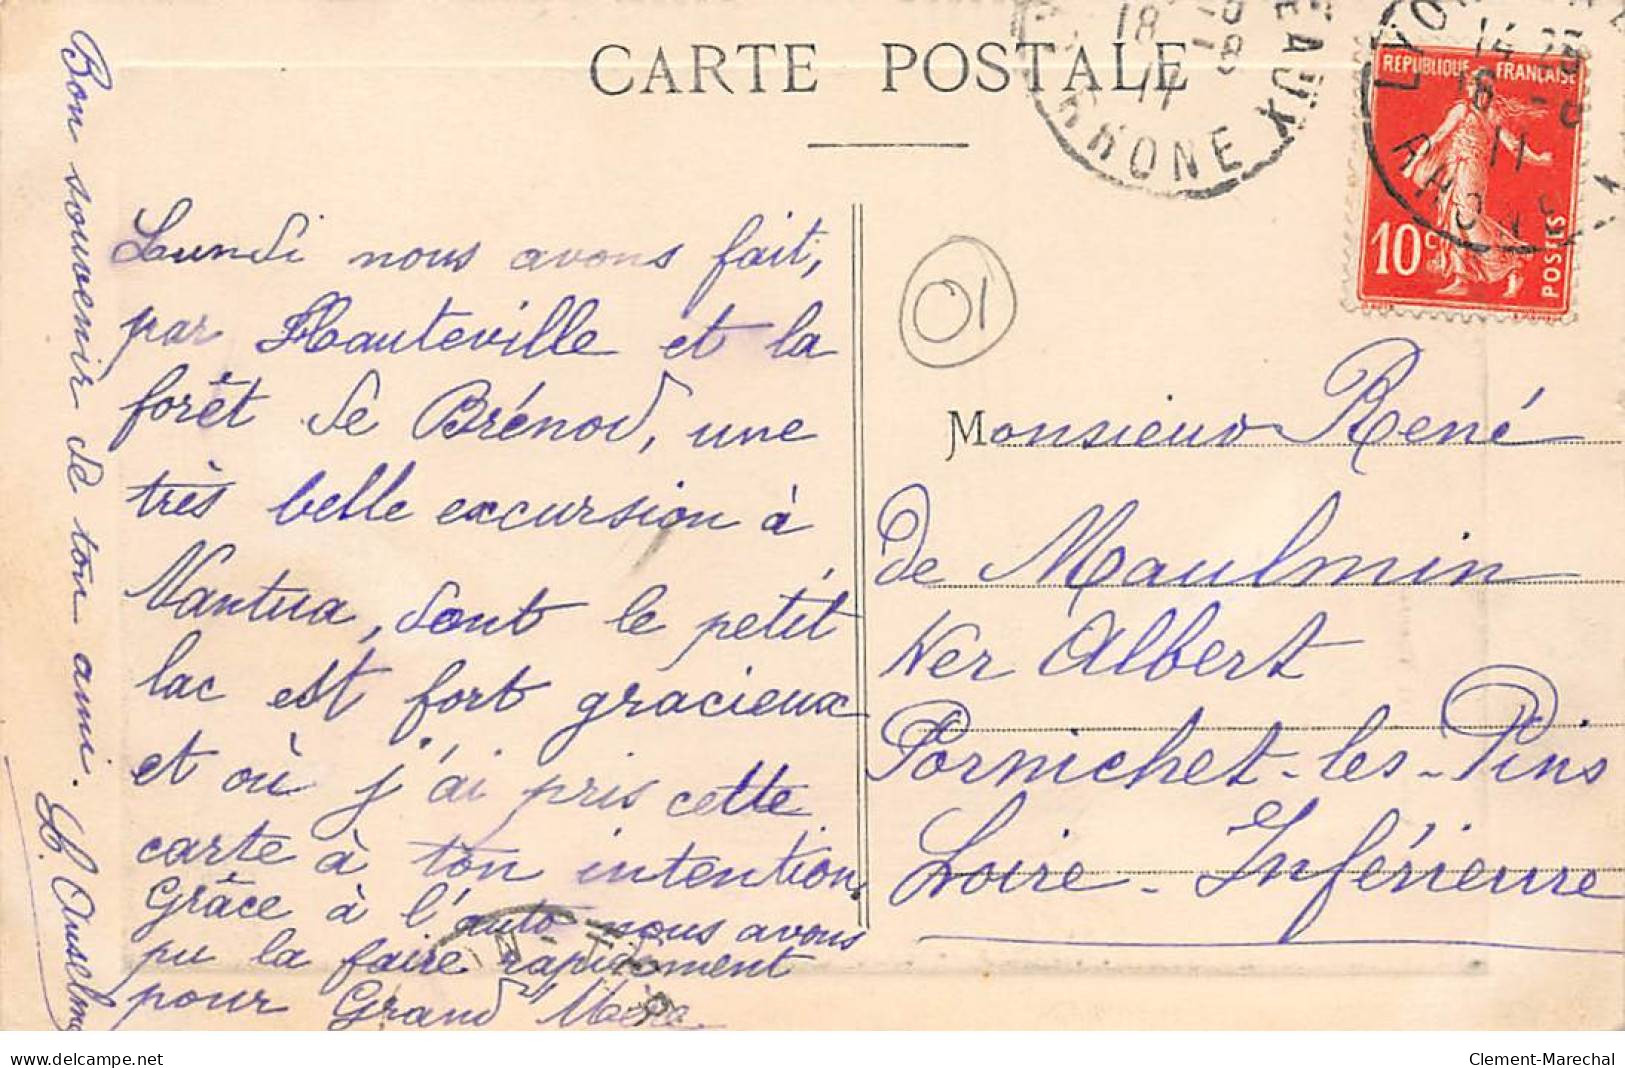 CARTE POSTALE
RHONE
18
11
EAUX
LYON
14
16
11
RHONE
REPUBLIQUE FRANÇAISE
10c
POSTES
01
Lundi nous avons fait,
par Hauteville et la
forêt de Brénod, une
très belle excursion à
Nantua, dont le petit
lac est fort gracieux
et où j'ai pris cette
carte à ton intention.
Grâce à l'auto nous avons
pu la faire rapidement
pour Grand'Mère
Bon souvenir de ton ami.
L. Anselme
Monsieur René
de Maulmin
Ker Albert
Pornichet-les-Pins
Loire-Inférieure
www.delcampe.net
Clement-Marechal